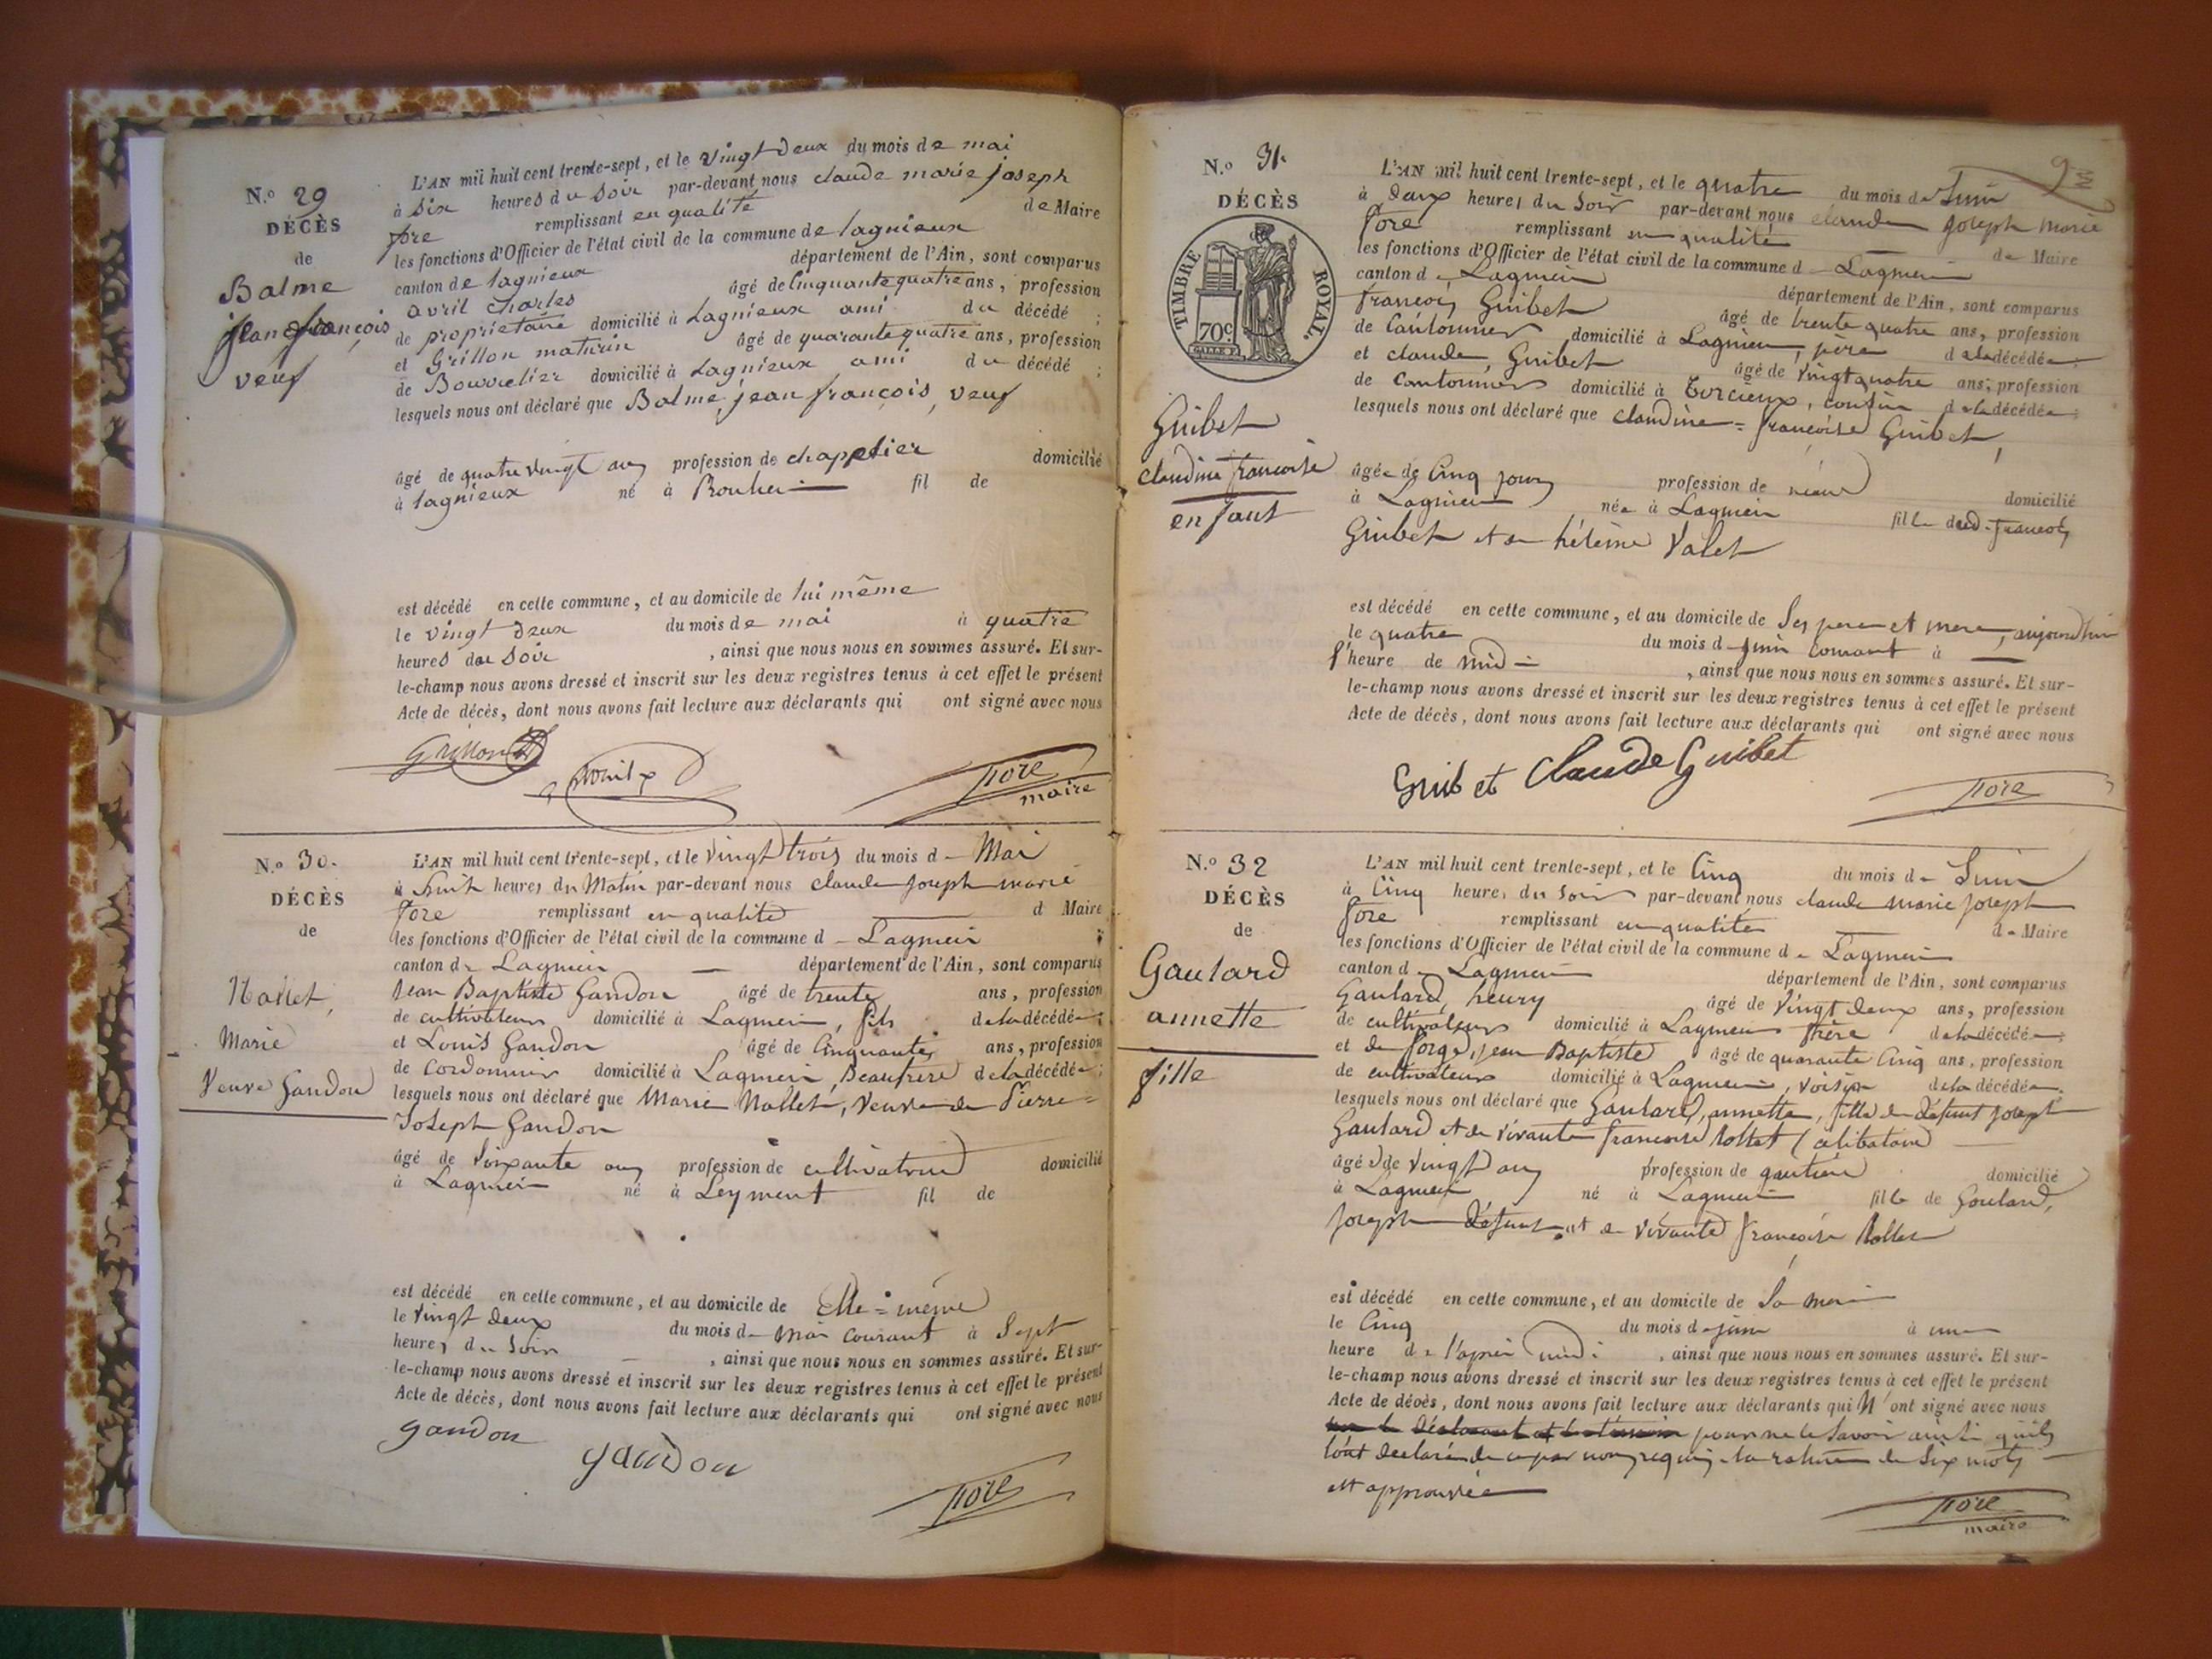 N.o 29
DÉCÈS
de
Balme
jean françois
veuf
L'AN mil huit cent trente-sept, et le vingt deux du mois de mai
à six heures du soir par-devant nous claude marie joseph
fore remplissant en qualité de Maire
les fonctions d'Officier de l'état civil de la commune de lagnieux
canton de lagnieux département de l'Ain, sont comparus
avril charles âgé de Cinquante quatre ans, profession
de proprietaire domicilié à Lagnieux ami du décédé ;
et Grillon maturin âgé de quarante quatre ans, profession
de Bourrelier domicilié à Lagnieux ami du décédé ;
lesquels nous ont déclaré que Balme, jean françois, veuf
âgé de quatre vingt ans profession de chappelier domicilié
à lagnieux né à fil de
est décédé en cette commune, et au domicile de lui même
le vingt deux du mois de mai à quatre
heures du soir , ainsi que nous nous en sommes assuré. Et sur-
le-champ nous avons dressé et inscrit sur les deux registres tenus à cet effet le présent
Acte de décès, dont nous avons fait lecture aux déclarants qui ont signé avec nous
Grillon
fore
maire
N.o 30.
DÉCÈS
de
Nallet,
Marie
Veuve Gandon
L'AN mil huit cent trente-sept, et le vingt trois du mois de Mai
à huit heures du Matin par-devant nous claude joseph marie
fore remplissant en qualité d Maire
les fonctions d'Officier de l'état civil de la commune d Lagnieu
canton de Lagnieu département de l'Ain, sont comparus
Jean Baptiste Gandon âgé de trente ans, profession
de cultivateur domicilié à Lagnieu, fils de la décédée ;
et Louis Gandon âgé de Cinquante ans, profession
de Cordonnier domicilié à Lagnieu, Beaufrere de la décédée ;
lesquels nous ont déclaré que Marie Nallet, Veuve de Pierre=
Joseph Gandon
âgé de Soixante ans profession de cultivatrice domicilié
à Lagnieu né à Leyment fil de
est décédé en cette commune, et au domicile de Elle=même
le Vingt deux du mois de Mai courant à Sept
heures du Soir , ainsi que nous nous en sommes assuré. Et sur-
le-champ nous avons dressé et inscrit sur les deux registres tenus à cet effet le présent
Acte de décès, dont nous avons fait lecture aux déclarants qui ont signé avec nous
gandon
gandon
fore
N.o 31.
DÉCÈS
TIMBRE ROYAL.
70c.
Guibet
claudine francoise
enfant
L'AN mil huit cent trente-sept, et le quatre du mois de Juin
à deux heures du Soir par-devant nous claude joseph marie
fore remplissant en qualité de Maire
les fonctions d'Officier de l'état civil de la commune d Lagnieu
canton de Lagnieu département de l'Ain, sont comparus
françois Guibet âgé de trente quatre ans, profession
de Cantonnier domicilié à Lagnieu, père de la décédée ;
et claude, Guibet âgé de Vingt quatre ans, profession
de Cantonnier domicilié à Torcieux, cousin de la décédée ;
lesquels nous ont déclaré que claudine=françoise Guibet,
âgée de Cinq jours profession de néant domicilié
à Lagnieu née à Lagnieu fille dud. françois
Guibet et de hélène Valet
est décédé en cette commune, et au domicile de Ses pere et mere, aujourd'hui
le quatre du mois d juin courant à
l'heure de midi , ainsi que nous nous en sommes assuré. Et sur-
le-champ nous avons dressé et inscrit sur les deux registres tenus à cet effet le présent
Acte de décès, dont nous avons fait lecture aux déclarants qui ont signé avec nous
Guibet Claude Guibet
fore
N.o 32
DÉCÈS
de
Gaulard
annette
fille
L'AN mil huit cent trente-sept, et le Cinq du mois de Juin
à Cinq heures du Soir par-devant nous claude marie joseph
fore remplissant en qualité de Maire
les fonctions d'Officier de l'état civil de la commune de Lagnieu
canton de Lagnieu département de l'Ain, sont comparus
Gaulard, henry âgé de Vingt deux ans, profession
de cultivateur domicilié à Lagnieu frère de la décédée ;
et de forge, jean Baptiste âgé de quarante Cinq ans, profession
de cultivateur domicilié à Lagnieu, Voisin de la décédée.
lesquels nous ont déclaré que Gaulard, annette, fille de défunt joseph
Gaulard et de Vivante francoise Rollet (célibataire
âgé de Vingt ans profession de gantière domicilié
à Lagnieu né à Lagnieu fille de Goulard,
joseph défunt et de Vivante françoise Rollet
est décédé en cette commune, et au domicile de Sa mere
le Cinq du mois de juin à une
heure de l'aprés midi , ainsi que nous nous en sommes assuré. Et sur-
le-champ nous avons dressé et inscrit sur les deux registres tenus à cet effet le présent
Acte de décès, dont nous avons fait lecture aux déclarants qui N'ont signé avec nous
pour ne le Savoir ainsi qu'ils
l'ont declaré de ce par nous requis. la rature de Six mots
est approuvée
fore
maire